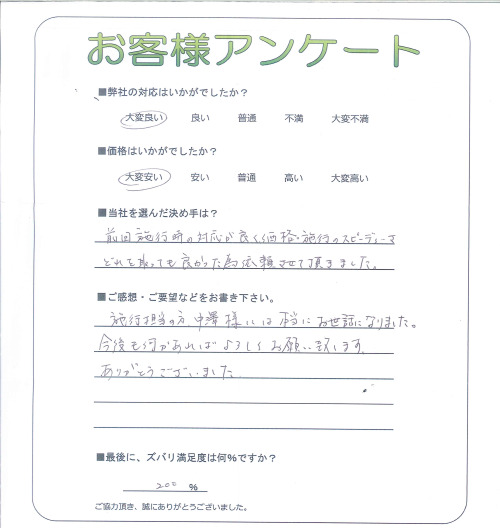 お客様アンケート
■弊社の対応はいかがでしたか？
大変良い 良い 普通 不満 大変不満
■価格はいかがでしたか？
大変安い 安い 普通 高い 大変高い
■当社を選んだ決め手は？
前回施行時の対応が良く、価格・施行のスピーディーさ
どれを取っても良かった為依頼させて頂きました。
■ご感想・ご要望などをお書き下さい。
施行担当の方、中澤様には本当にお世話になりました。
今後も何かあればよろしくお願い致します。
ありがとうございました。
■最後に、ズバリ満足度は何%ですか？
200 %
ご協力頂き、誠にありがとうございました。